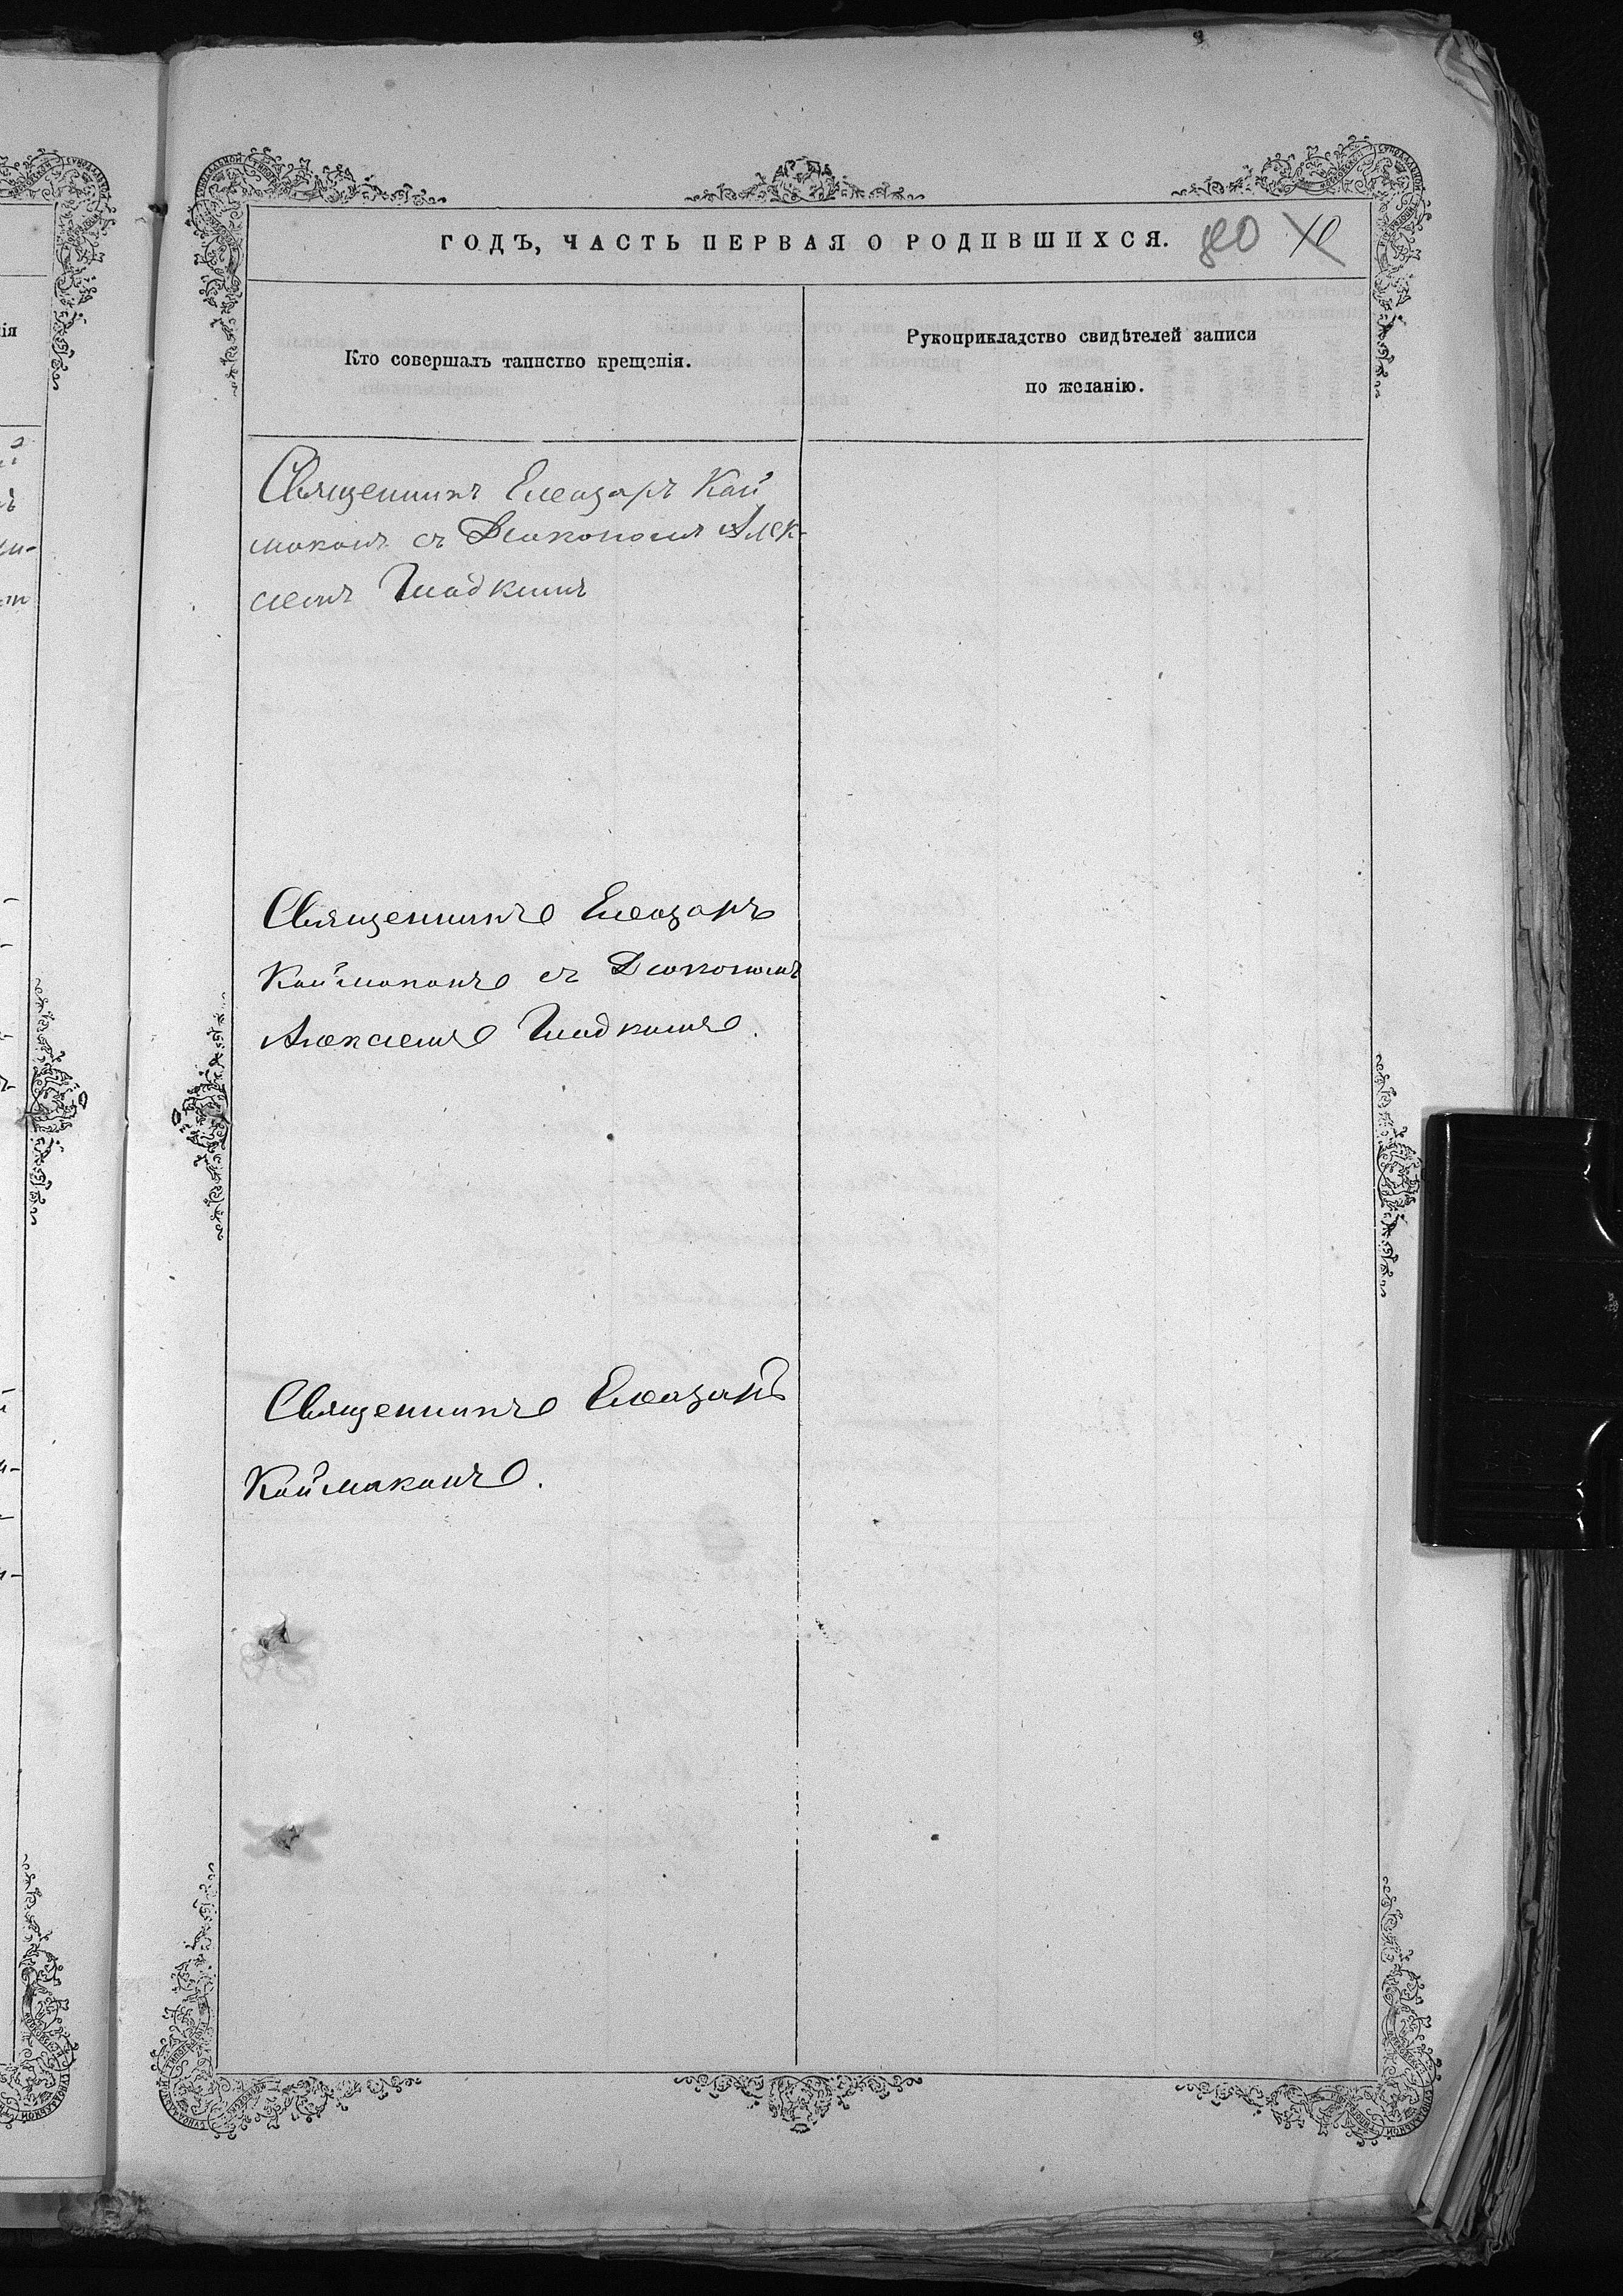 ГОДЪ, ЧАСТЬ ПЕРВАЯ О РОДИВШИХСЯ.
10
Кто совершалъ таинство крещенія.
Рукоприкладство свидѣтелей записи
по желанію.
Священникъ Елеазаръ Кай
маканъ съ Діакономъ Алек-
сіемъ Гладкимъ
Священникъ Елеазаръ
Каймаканъ съ Діакономъ
Алексіемъ Гладкимъ.
Священникъ Елеазаръ
Каймаканъ.